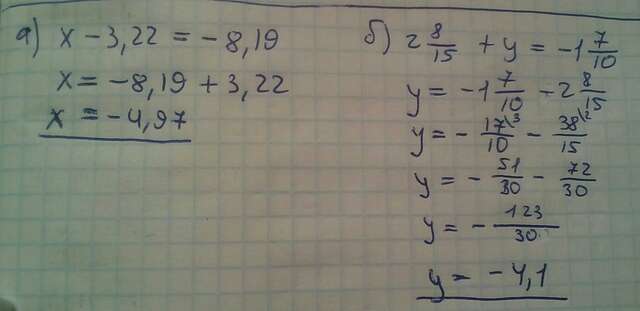 а) x - 3,22 = -8,19
x = -8,19 + 3,22
x = -4,97
б) 2 8/15 + y = -1 7/10
y = -1 7/10 - 2 8/15
y = - 17\3/10 - 38\2/15
y = - 51/30 - 72/30
y = - 123/30
y = -4,1